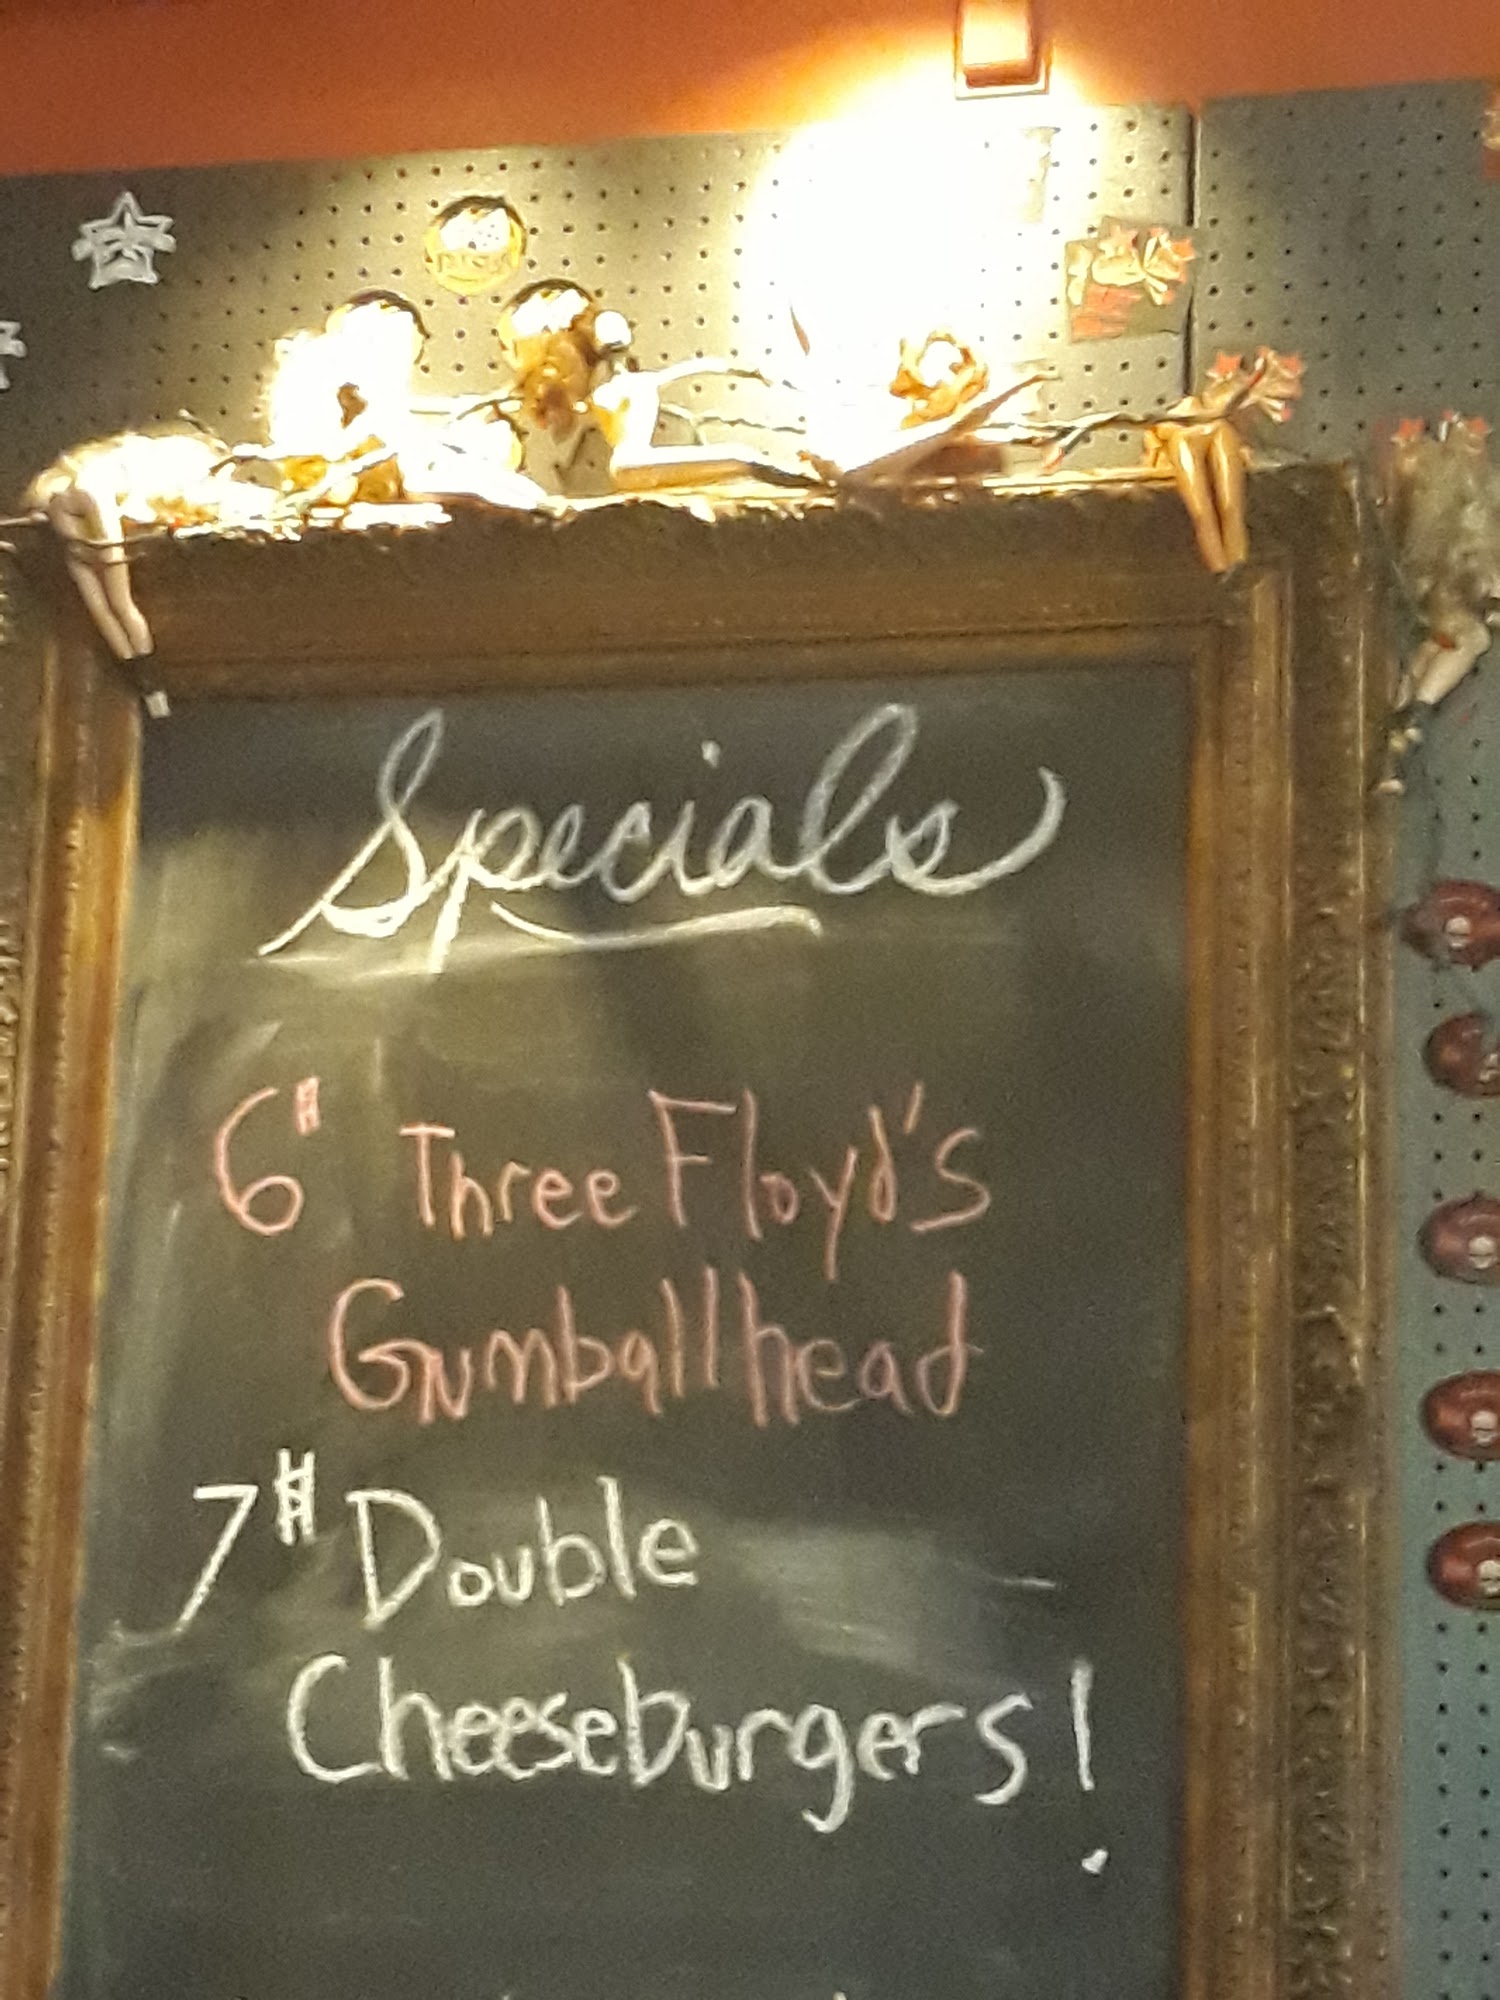 Specials
6# Three Floyd's
Gumballhead
7# Double
Cheeseburgers!